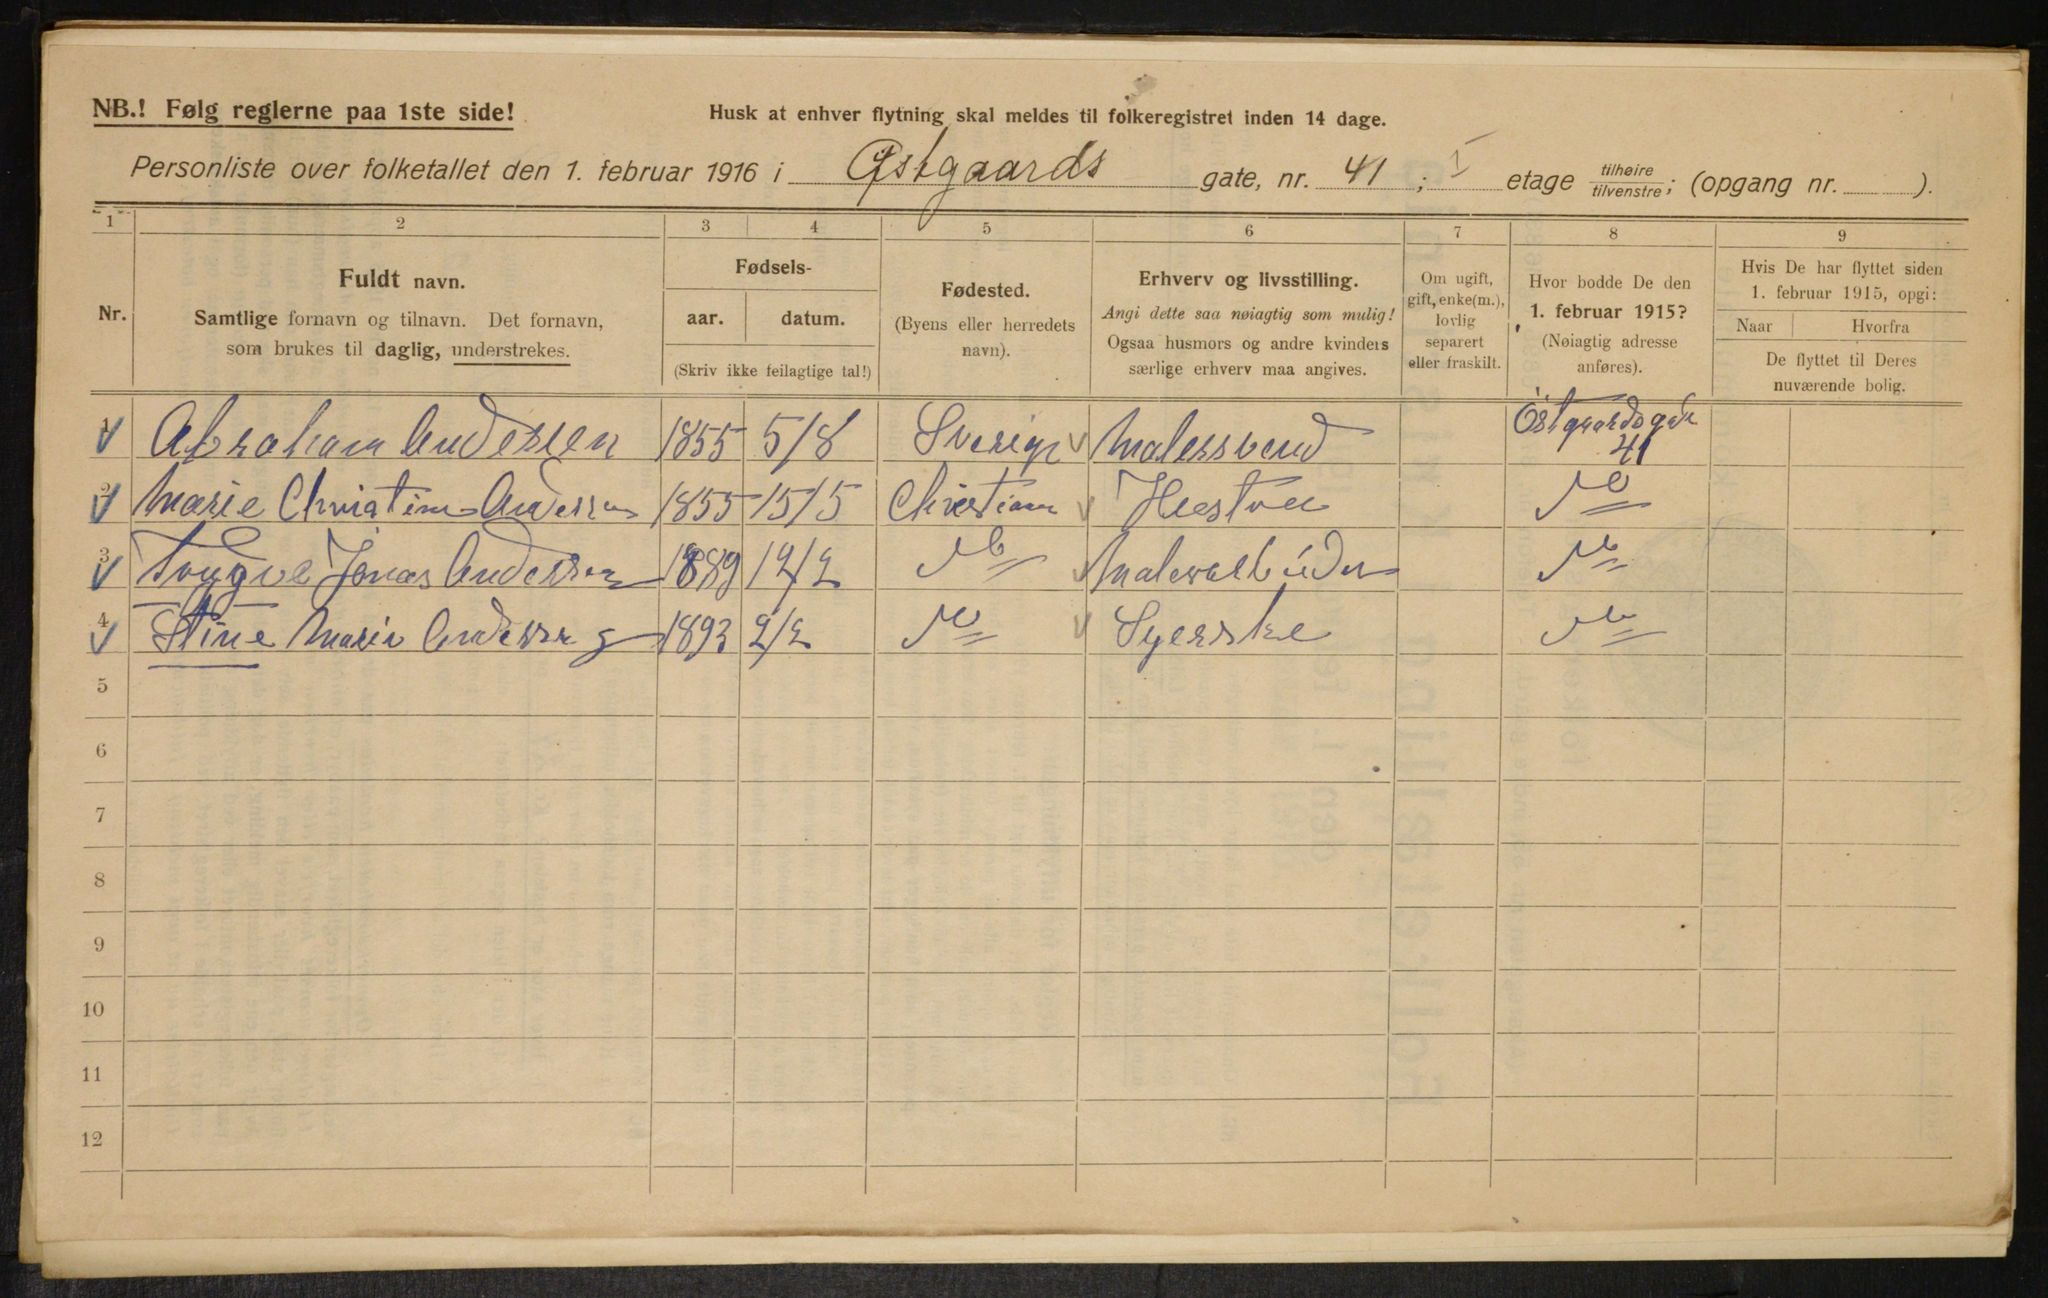 NB.! Følg reglerne paa 1ste side!
Husk at enhver flytning skal meldes til folkeregistret inden 14 dage.
Personliste over folketallet den 1. februar 1916 i Østgaards gate, nr. 41 ; I etage tilhøire tilvenstre ; (opgang nr. ).
1 2 3 4 5 6 7 8 9
Nr.
Fuldt navn.
Samtlige fornavn og tilnavn. Det fornavn,
som brukes til daglig, understrekes.
Fødsels-
aar. datum.
(Skriv ikke feilagtige tal!)
Fødested.
(Byens eller herredets
navn).
Erhverv og livsstilling.
Angi dette saa nøiagtig som mulig!
Ogsaa husmors og andre kvinders
særlige erhverv maa angives.
Om ugift,
gift, enke(m.),
lovlig
separert
eller fraskilt.
Hvor bodde De den
1. februar 1915?
(Nøiagtig adresse
anføres).
Hvis De har flyttet siden
1. februar 1915, opgi:
Naar Hvorfra
De flyttet til Deres
nuværende bolig.
1 Abraham Andersen 1855 5/8 Sverige Malersvend Östgaardsgade 41
2 Marie Christine Andersen 1855 15/5 Christiania Hustru
3 Trygve Jonas Andersen 1889 12/2 Malerarbeider
4 Stine Marie Andersen 1893 2/2 Syerske
5
6
7
8
9
10
11
12